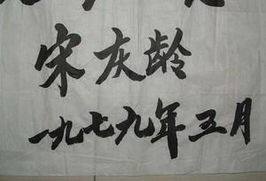 宋灰龄
一九七九年五月